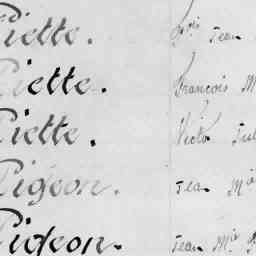 Piette. Fois Jean
Piette. François M
Piette. Victor Jul
Pigeon. Jean Mie
Pigeon. Jean Mie